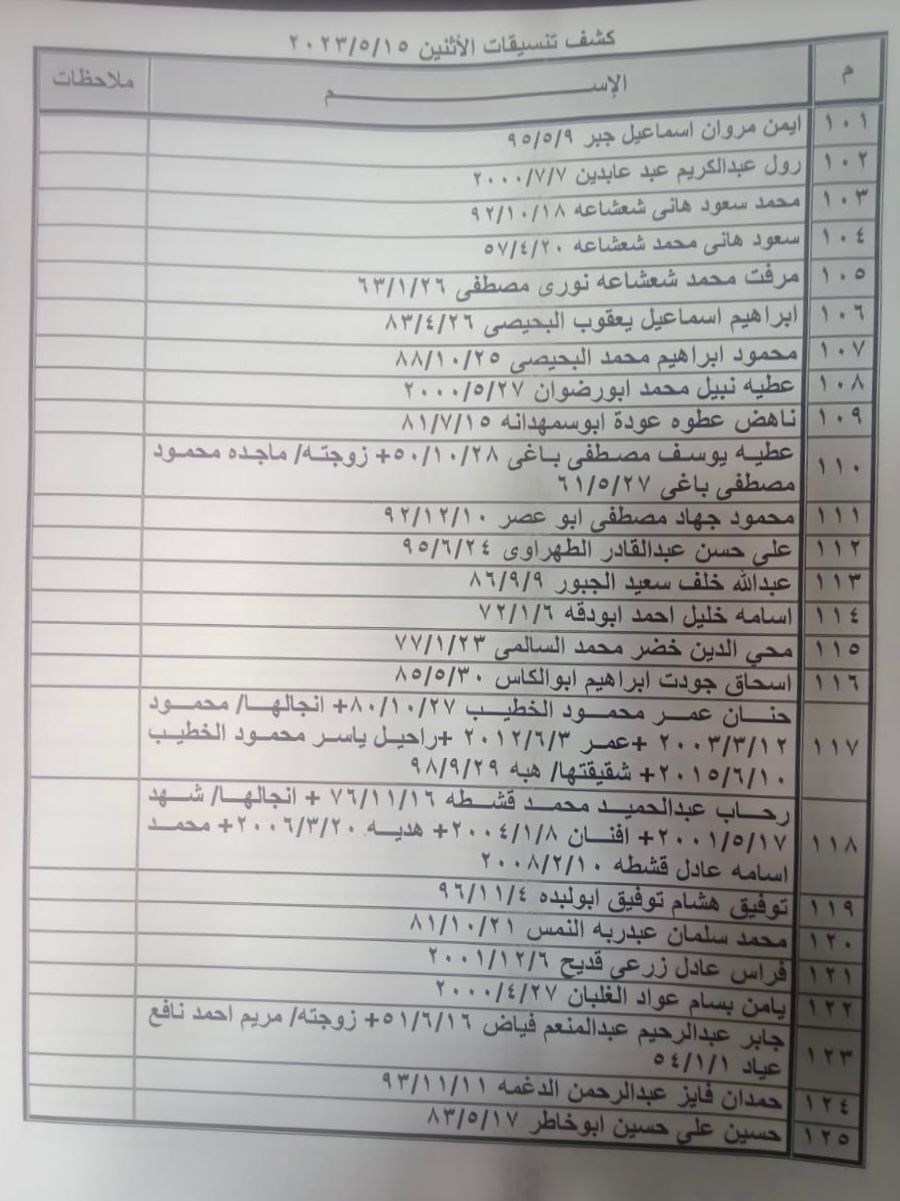 كشف تنسيقات الأثنين ٢٠٢٣/٥/١٥
م الإســـــــــــــم ملاحظات
١٠١ ايمن مروان اسماعيل جبر ٩٥/٥/٩
١٠٢ رول عبدالكريم عبد عابدين ٢٠٠٠/٧/٧
١٠٣ محمد سعود هانى شعشاعه ٩٢/١٠/١٨
١٠٤ سعود هانى محمد شعشاعه ٥٧/٤/٢٠
١٠٥ مرفت محمد شعشاعه نورى مصطفى ٦٣/١/٢٦
١٠٦ ابراهيم اسماعيل يعقوب البحيصى ٨٣/٤/٢٦
١٠٧ محمود ابراهيم محمد البحيصى ٨٨/١٠/٢٥
١٠٨ عطيه نبيل محمد ابورضوان ٢٠٠٠/٥/٢٧
١٠٩ ناهض عطوه عودة ابوسمهدانه ٨١/٧/١٥
١١٠ عطيه يوسف مصطفى باغى ٥٠/١٠/٢٨+ زوجته/ ماجده محمود
مصطفى باغى ٦١/٥/٢٧
١١١ محمود جهاد مصطفى ابو عصر ٩٢/١٢/١٠
١١٢ على حسن عبدالقادر الطهراوى ٩٥/٦/٢٤
١١٣ عبدالله خلف سعيد الجبور ٨٦/٩/٩
١١٤ اسامه خليل احمد ابودقه ٧٢/١/٦
١١٥ محي الدين خضر محمد السالمى ٧٧/١/٢٣
١١٦ اسحاق جودت ابراهيم ابوالكاس ٨٥/٥/٣٠
١١٧ حنان عمر محمود الخطيب ٨٠/١٠/٢٧+ انجالها/ محمود
٢٠٠٣/٣/١٢ +عمر ٢٠١٢/٦/٣ +راحيل ياسر محمود الخطيب
٢٠١٥/٦/١٠+ شقيقتها/ هبه ٩٨/٩/٢٩
١١٨ رحاب عبدالحميد محمد قشطه ٧٦/١١/١٦ + انجالها/ شهد
٢٠٠١/٥/١٧+ افنان ٢٠٠٤/١/٨+ هديه ٢٠٠٦/٣/٢٠+ محمد
اسامه عادل قشطه ٢٠٠٨/٢/١٠
١١٩ توفيق هشام توفيق ابولبده ٩٦/١١/٤
١٢٠ محمد سلمان عبدربه النمس ٨١/١٠/٢١
١٢١ فراس عادل زرعى قديح ٢٠٠١/١٢/٦
١٢٢ يامن بسام عواد الغلبان ٢٠٠٠/٤/٢٧
١٢٣ جابر عبدالرحيم عبدالمنعم فياض ٥١/٦/١٦+ زوجته/ مريم احمد نافع
عياد ٥٤/١/١
١٢٤ حمدان فايز عبدالرحمن الدغمه ٩٣/١١/١١
١٢٥ حسين على حسين ابوخاطر ٨٣/٥/١٧